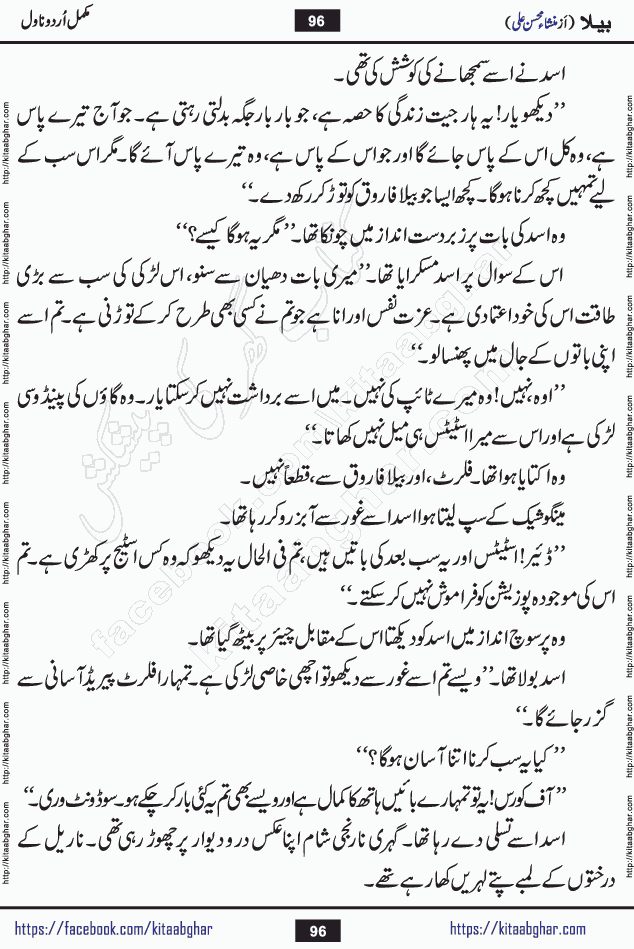 بیلا (از منشاء محسن علی)
96
مکمل اُردو ناول
اسد نے اسے سمجھانے کی کوشش کی تھی۔
’’دیکھو یار! یہ ہار جیت زندگی کا حصہ ہے، جو بار بار جگہ بدلتی رہتی ہے۔ جو آج تیرے پاس
ہے، وہ کل اس کے پاس جائے گا اور جو اس کے پاس ہے، وہ تیرے پاس آئے گا۔ مگر اس سب کے
لیے تمہیں کچھ کرنا ہوگا۔ کچھ ایسا جو بیلا فاروق کو توڑ کر رکھ دے۔‘‘
وہ اسد کی بات پر زبردست انداز میں چونکا تھا۔ ’’مگر یہ ہوگا کیسے؟‘‘
اس کے سوال پر اسد مسکرایا تھا۔ ’’میری بات دھیان سے سنو، اس لڑکی کی سب سے بڑی
طاقت اس کی خود اعتمادی ہے۔ عزت نفس اور انا ہے جو تم نے کسی بھی طرح کر کے توڑنی ہے۔ تم اسے
اپنی باتوں کے جال میں پھنسالو۔‘‘
’’اوہ، نہیں! وہ میرے ٹائپ کی نہیں۔ میں اسے برداشت نہیں کر سکتا یار۔ وہ گاؤں کی پینڈو سی
لڑکی ہے اور اس سے میرا اسٹیٹس ہی میل نہیں کھاتا۔‘‘
وہ اکتایا ہوا تھا۔ فلرٹ، اور بیلا فاروق سے، قطعاً نہیں۔
مینگو شیک کے سپ لیتا ہوا اسد اسے غور سے آبزرو کر رہا تھا۔
’’ڈئیر! اسٹیٹس اور یہ سب بعد کی باتیں ہیں، تم فی الحال یہ دیکھو کہ وہ کس اسٹیج پر کھڑی ہے۔ تم
اس کی موجودہ پوزیشن کو فراموش نہیں کر سکتے۔‘‘
وہ پرسوچ انداز میں اسد کو دیکھتا اس کے مقابل چیئر پر بیٹھ گیا تھا۔
اسد بولا تھا۔ ’’ویسے تم اسے غور سے دیکھو تو اچھی خاصی لڑکی ہے۔ تمہارا فلرٹ پیریڈ آسانی سے
گزر جائے گا۔‘‘
’’کیا یہ سب کرنا اتنا آسان ہوگا؟‘‘
’’آف کورس! یہ تو تمہارے بائیں ہاتھ کا کمال ہے اور ویسے بھی تم یہ کئی بار کر چکے ہو۔ سو ڈونٹ وری۔‘‘
اسد اسے تسلی دے رہا تھا۔ گہری نارنجی شام اپنا عکس در و دیوار پر چھوڑ رہی تھی۔ ناریل کے
درختوں کے لمبے پتے لہریں کھا رہے تھے۔
http://kitaabghar.com
کتاب گھر کی پیشکش
facebook.com/kitaabghar
kitaabghar.com
https://facebook.com/kitaabghar
96
https://kitaabghar.com